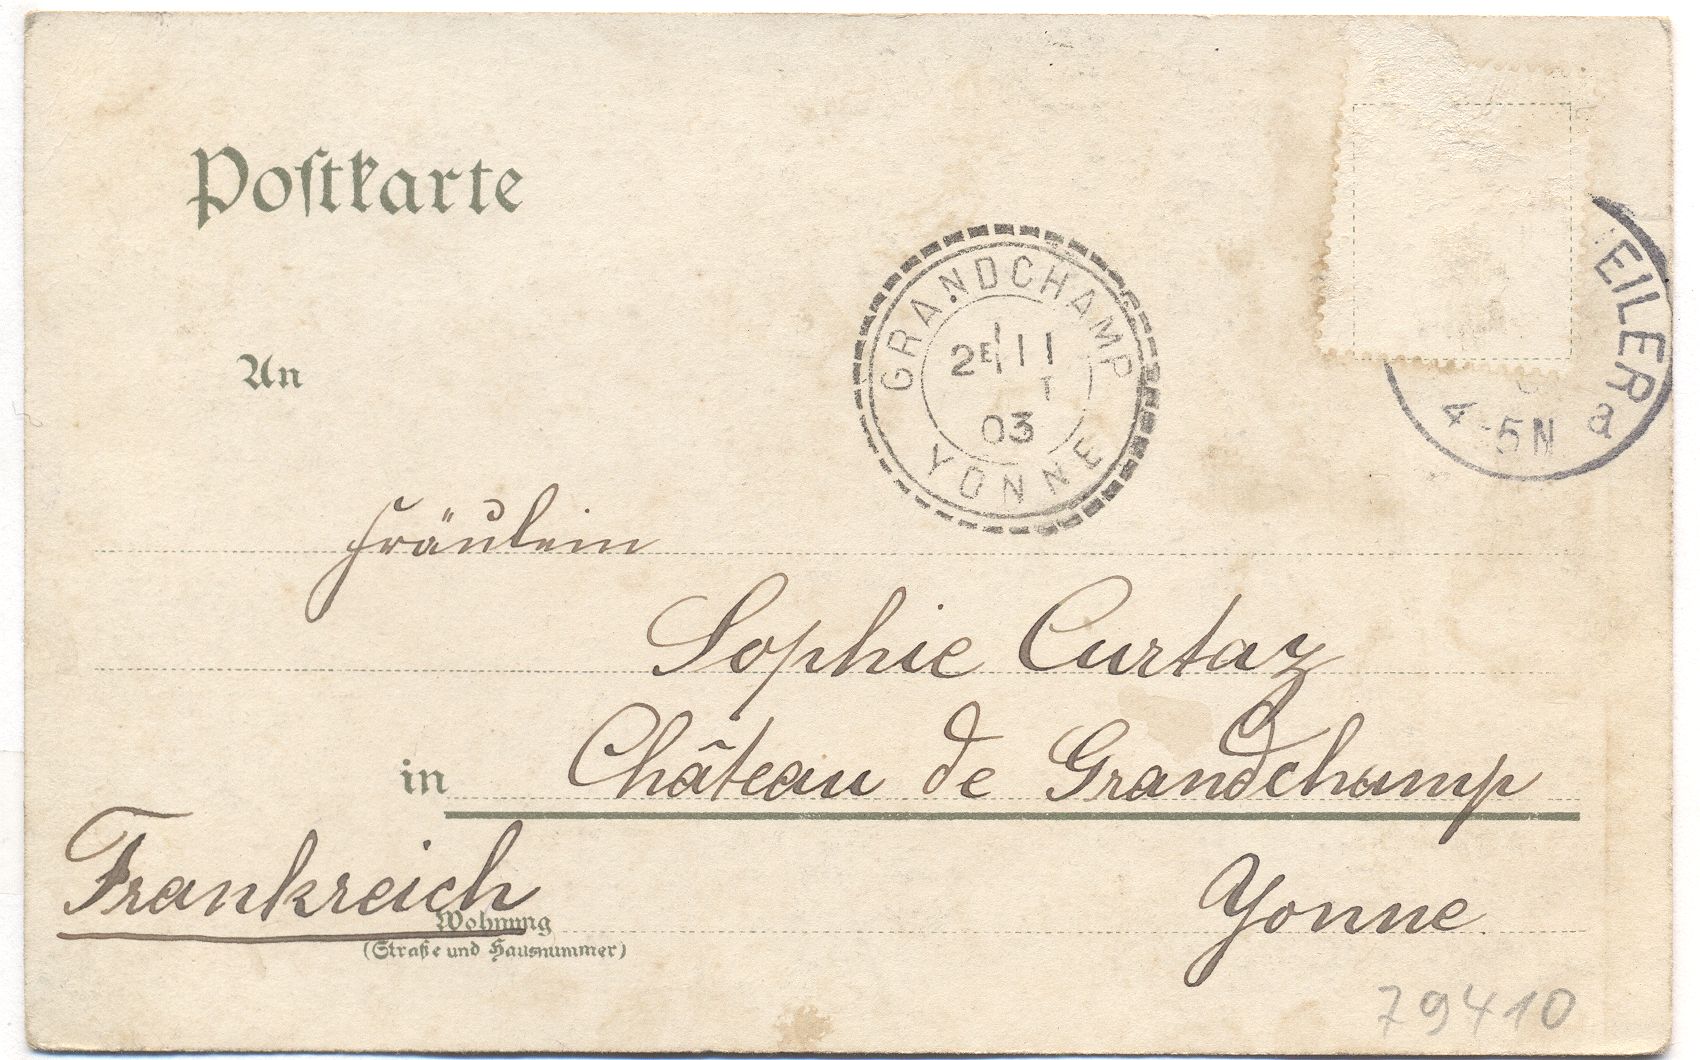 Postkarte
GRANDCHAMP
2E 11
03
YONNE
EILER
4-5N a
An
Fräulein
Sophie Curtaz
in Château de Grandchamp
Frankreich Yonne
Wohnung
(Straße und Hausnummer)
79410